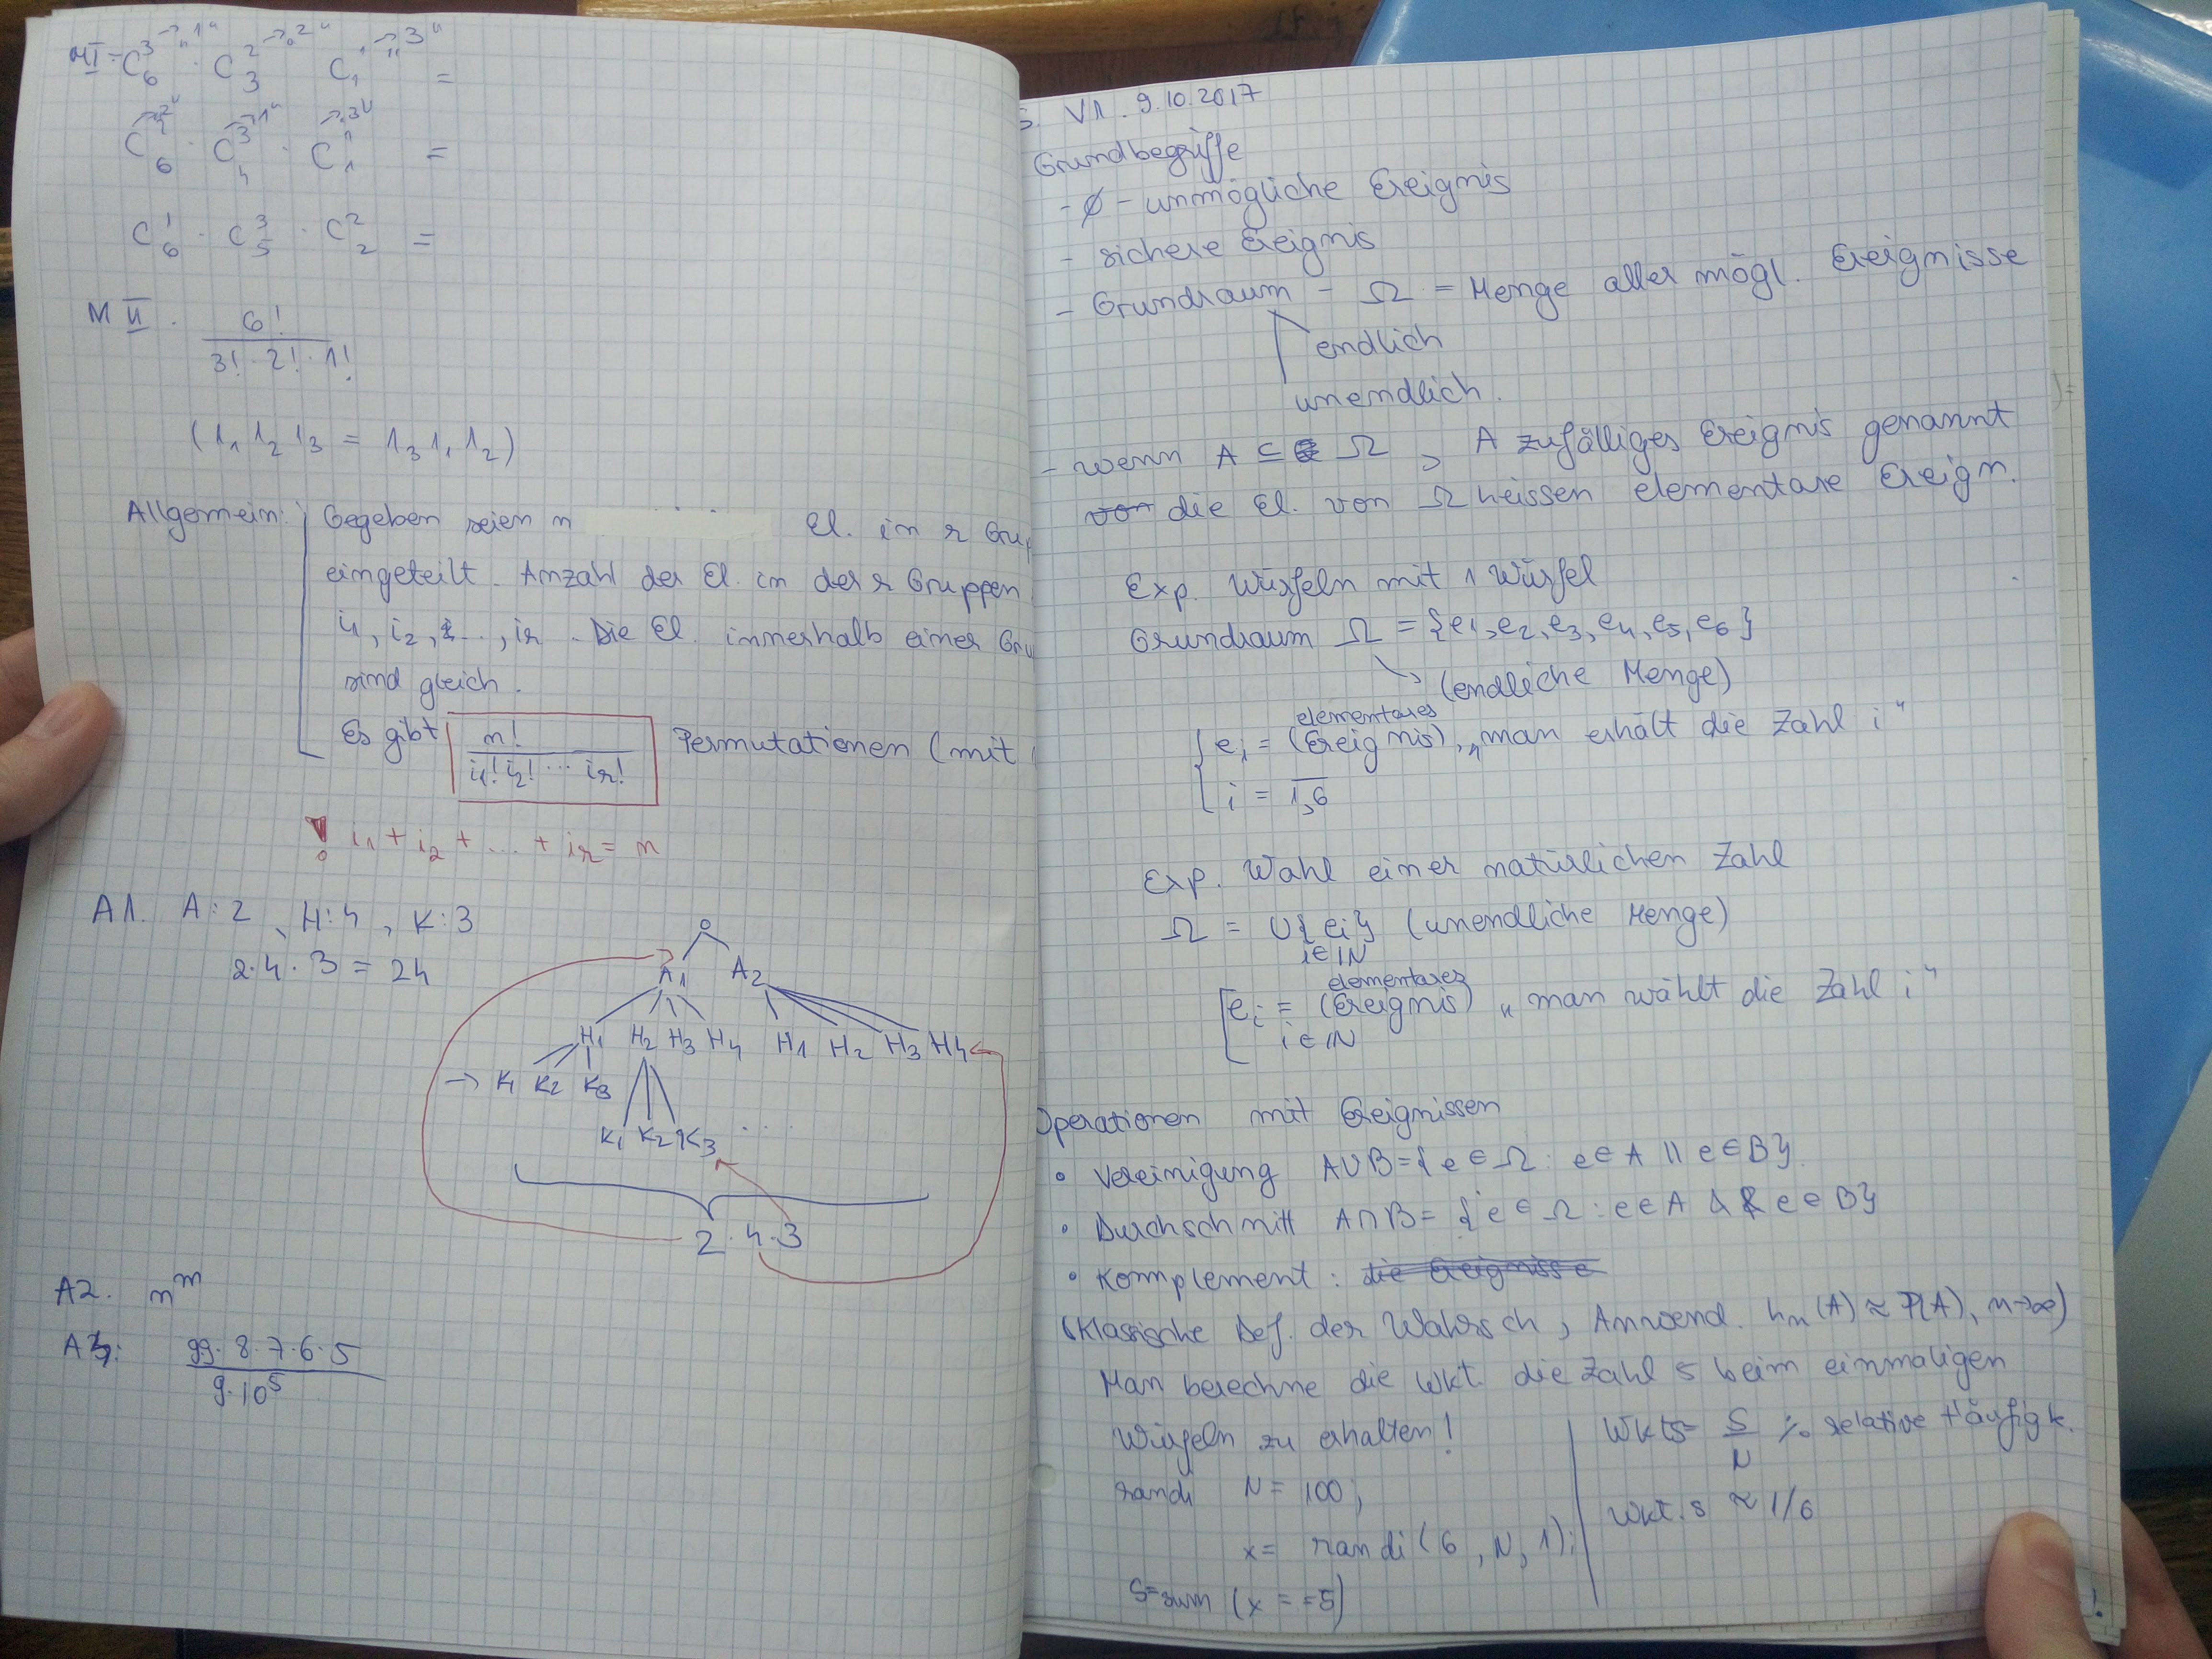 MI - C₆³ → "1" · C₃² → "2" C₁¹ → "3" =
C₆² → "2" · C₄³ → "1" · C₁¹ → "3" =
C₆¹ · C₅³ · C₂² =
M II. 6! / 3!·2!·1!
(1₁ 1₂ 1₃ = 1₃ 1₁ 1₂)
Allgemein: Gegeben seien n El. in r Grup
eingeteilt. Anzahl der El. in der r Gruppen
i₁, i₂, ..., iᵣ. Die El. innerhalb einer Gru
sind gleich.
Es gibt n! / i₁! i₂! ... iᵣ! Permutationen (mit
! i₁ + i₂ + ... + iᵣ = n
A1. A:2, H:4, K:3
2·4·3 = 24
A₁ A₂
H₁ H₂ H₃ H₄ H₁ H₂ H₃ H₄
→ K₁ K₂ K₃
K₁ K₂ K₃ ...
2·4·3
A2. nᵐ
99·8·7·6·5 / 9·10⁵
S. V1. 9.10.2017
Grundbegriffe
- ∅ - unmögliche Ereignis
- sichere Ereignis
- Grundraum - Ω = Menge aller mögl. Ereignisse
endlich
unendlich.
- wenn A ⊆ Ω, A zufälliges Ereignis genannt
von die El. von Ω heissen elementare Ereign.
Exp. Würfeln mit 1 Würfel
Grundraum Ω = {e₁, e₂, e₃, e₄, e₅, e₆}
(endliche Menge)
elementares
eᵢ = (Ereignis), "man erhält die Zahl i"
i = 1,6
Exp. Wahl einer natürlichen Zahl
Ω = ∪{eᵢ} (unendliche Menge)
i∈ℕ
elementares
eᵢ = (Ereignis) "man wählt die Zahl i"
i∈ℕ
Operationen mit Ereignissen
• Vereinigung A∪B = {e ∈ Ω : e∈A || e∈B}
• Durchschnitt A∩B = {e ∈ Ω : e∈A && e∈B}
• Komplement: die Ereignisse
(Klassische Def. der Wahrsch, Anwend. hₙ(A) ≈ P(A), n→∞)
Man berechne die Wkt. die Zahl 5 beim einmaligen
Würfeln zu erhalten!
randi N = 100;
x = randi(6, N, 1);
S=sum (x==5)
Wkt5= S/N % relative Häufigk.
Wkt.5 ≈ 1/6
!